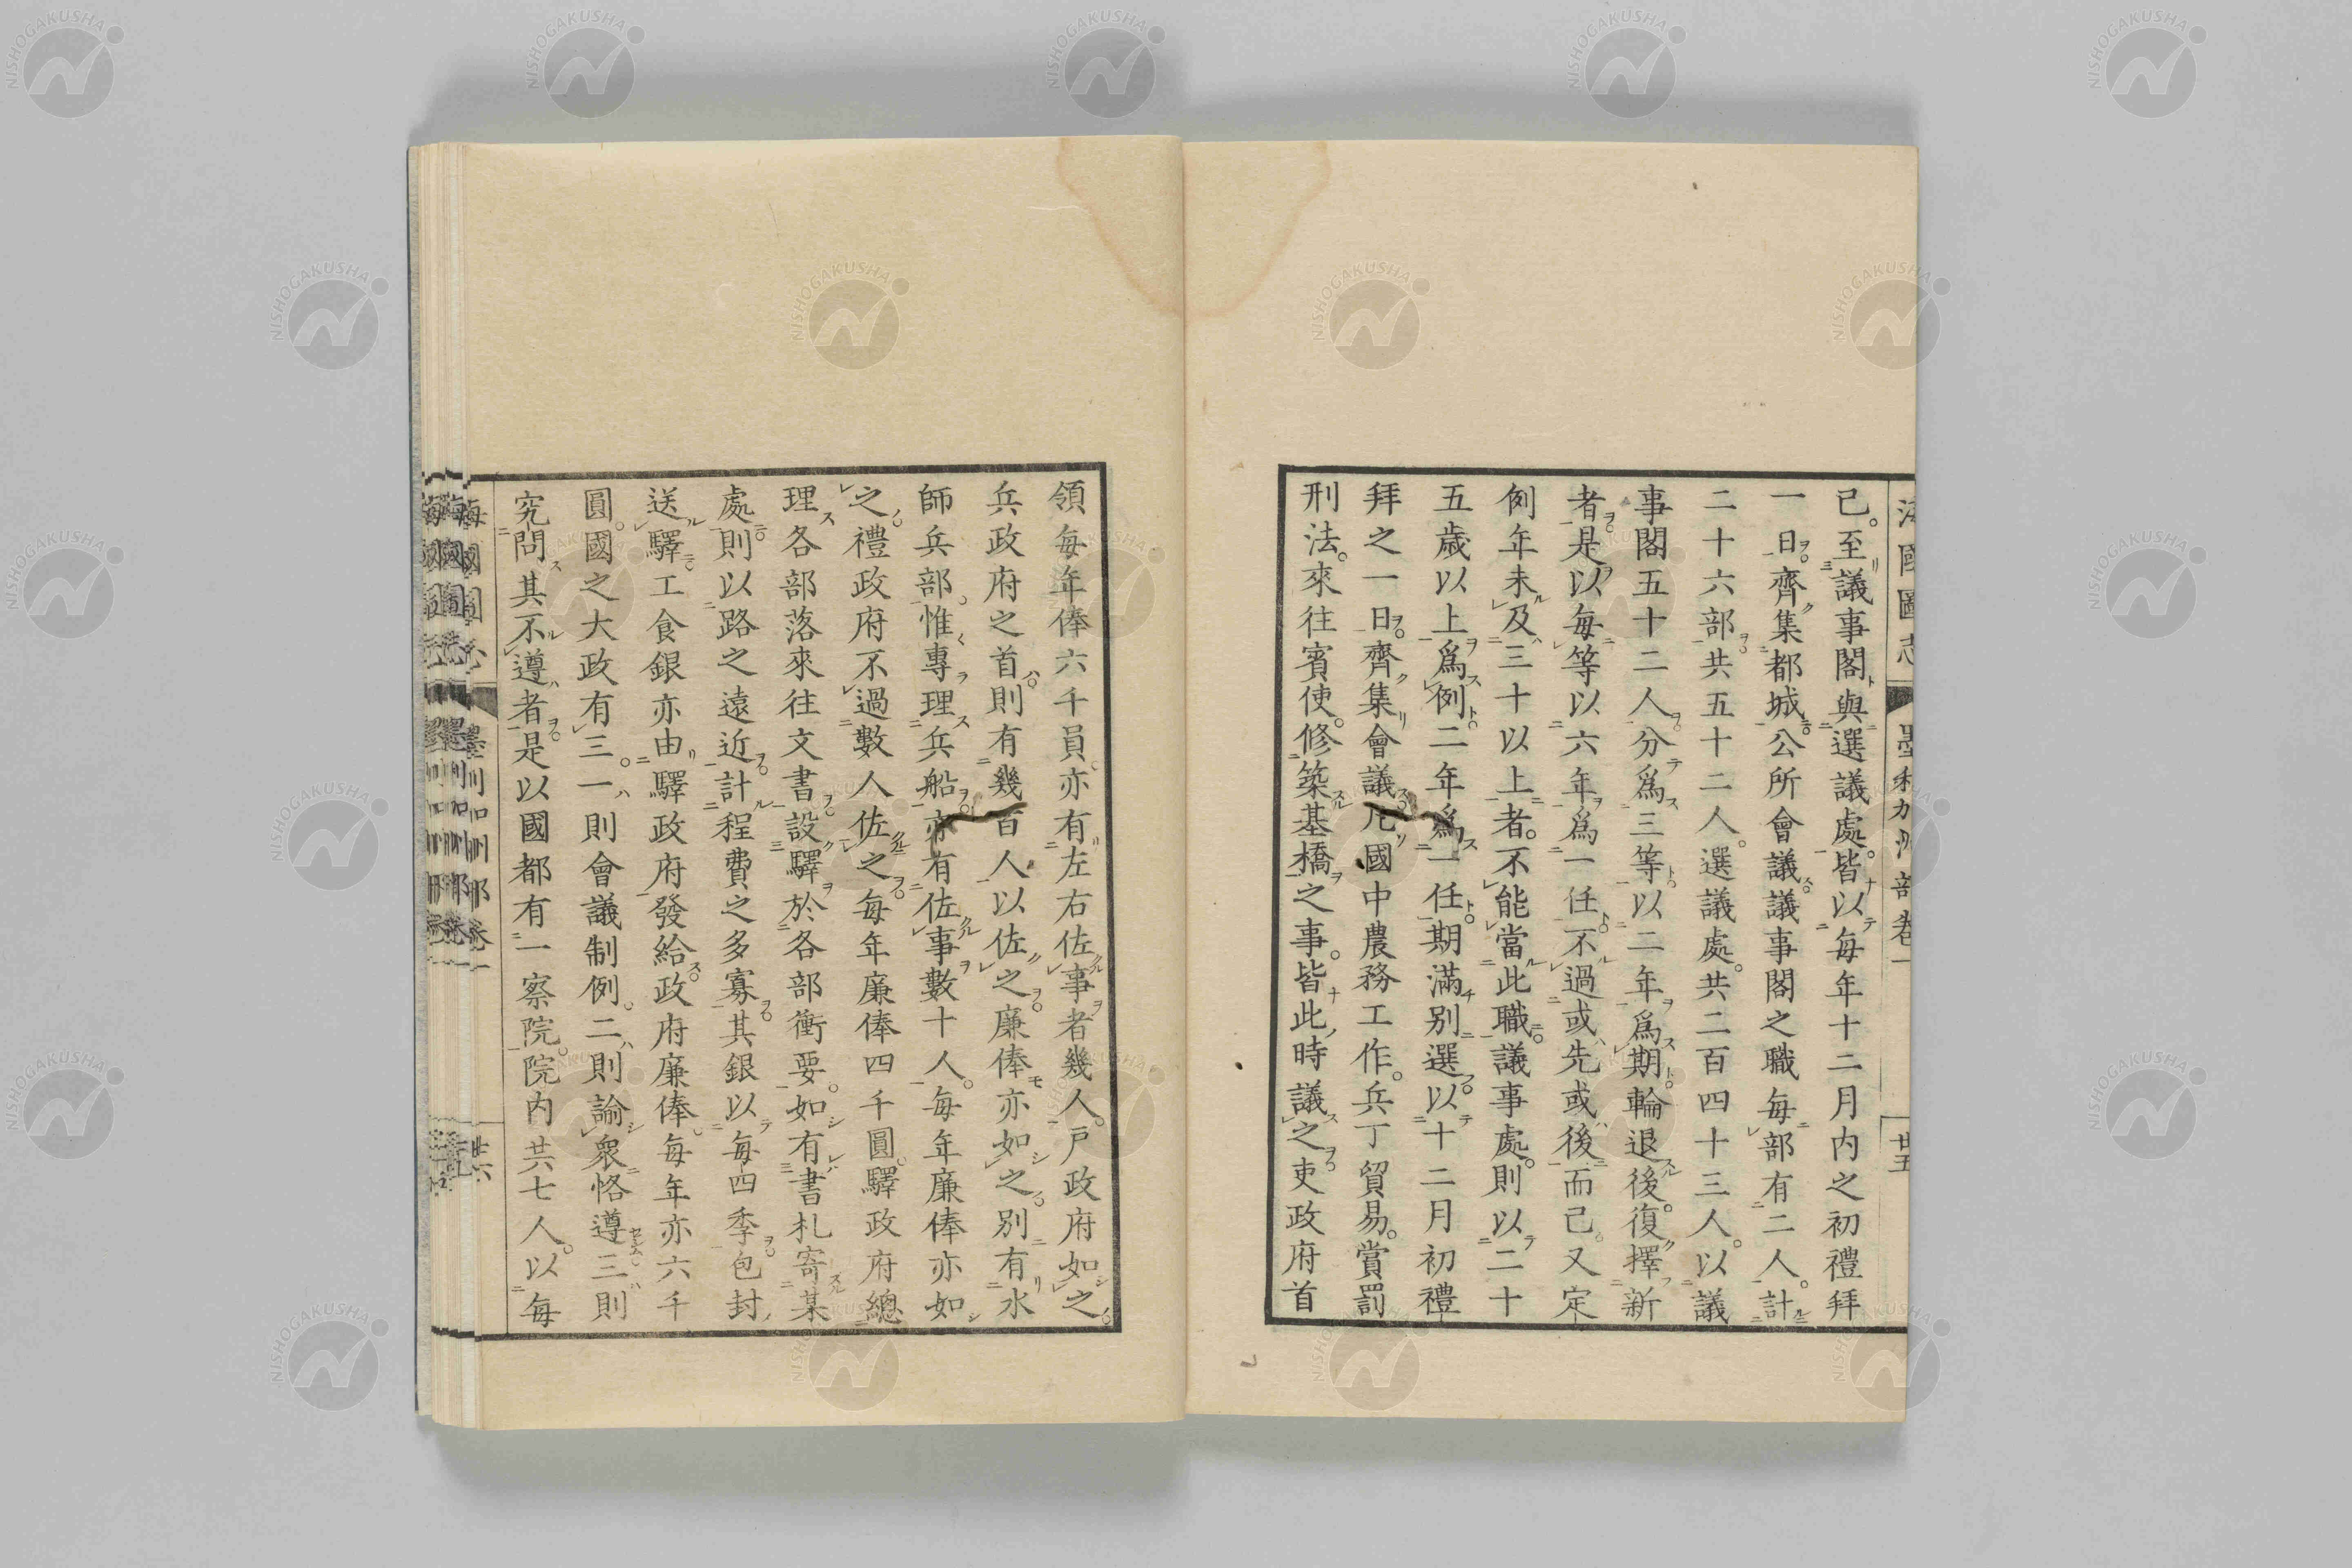 己。至議事閣與選議處。皆以每年十二月内之初禮拜
一日齊集都城公所會議議事閣之職每部有二人。計
二十六部共五十二人。選議處。共二百四十三人。以議
事閣五十二人分爲三等以二年爲期輪退後。復擇新
者是以每等以六年爲一任不過或先或後而己。又定
例年未及三十以上者。不能當此職。議事處。則以二十
五歲以上爲例二年爲一任。期滿別選以十二月初禮
拜之一日。齊集會議凡國中農務工作。兵丁貿易。賞罰
刑法。來往賓使。修築基橋之事。皆此時議之吏政府首
領每年俸六千員。亦有左右佐事者幾人。戸政府如之
兵政府之首則有幾百人以佐之廉俸亦如之別有水
師兵部。惟專理兵船亦有佐事數十人。每年廉俸亦如
之禮政府不過數人佐之每年廉俸四千圓。驛政府總
理各部落來往文書設驛於各部衝要。如有書札寄某
處則以路之遠近計程費之多寡其銀以每四季包封
送驛工食銀亦由驛政府發給政府廉俸。每年亦六千
圓。國之大政有三。一則會議制例。二則諭衆恪遵三則
究問其不遵者是以國都有一察院。院内共七人。以每
海國圖志 墨利加洲部卷一 廿五
廿六
NISHOGAKUSHA